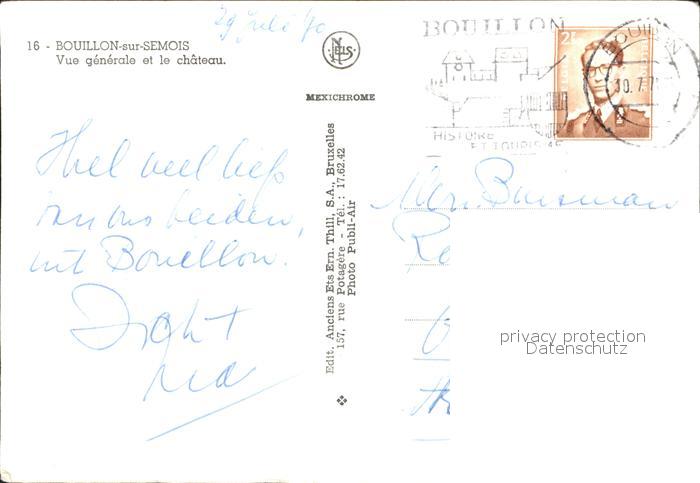 29 Juli 70
16 - BOUILLON-sur-SEMOIS
Vue générale et le château.
NELS
MEXICHROME
BOUILLON
HISTOIRE
ET TOURISME
BOUILLON
30.7.7
2F
Heel veel liefs
van ons beiden,
uit Bouillon.
Edit. Anciens Ets Ern. Thill, S.A., Bruxelles
157, rue Potagère - Tél. : 17.62.42
Photo Publi-Air
Mevr. Buisman
privacy protection
Datenschutz